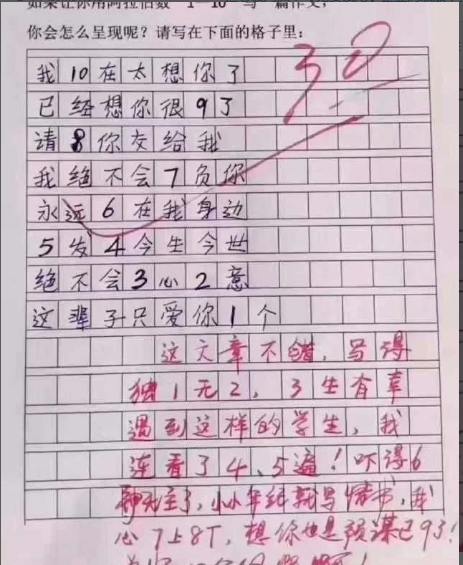 如果让你用阿拉伯数 1-10 写一篇作文,
你会怎么呈现呢?请写在下面的格子里:
30
我10在太想你了
已经想你很9了
请8你交给我
我绝不会7负你
永远6在我身边
5发4今生今世
绝不会3心2意
这辈子只爱你1个
这文章不错,写得
独1无2,3生有幸
遇到这样的学生,我
连看了4、5遍!吓得6
神无主了,小小年纪就写情书,我
心7上8下,想你也是预谋已9了!